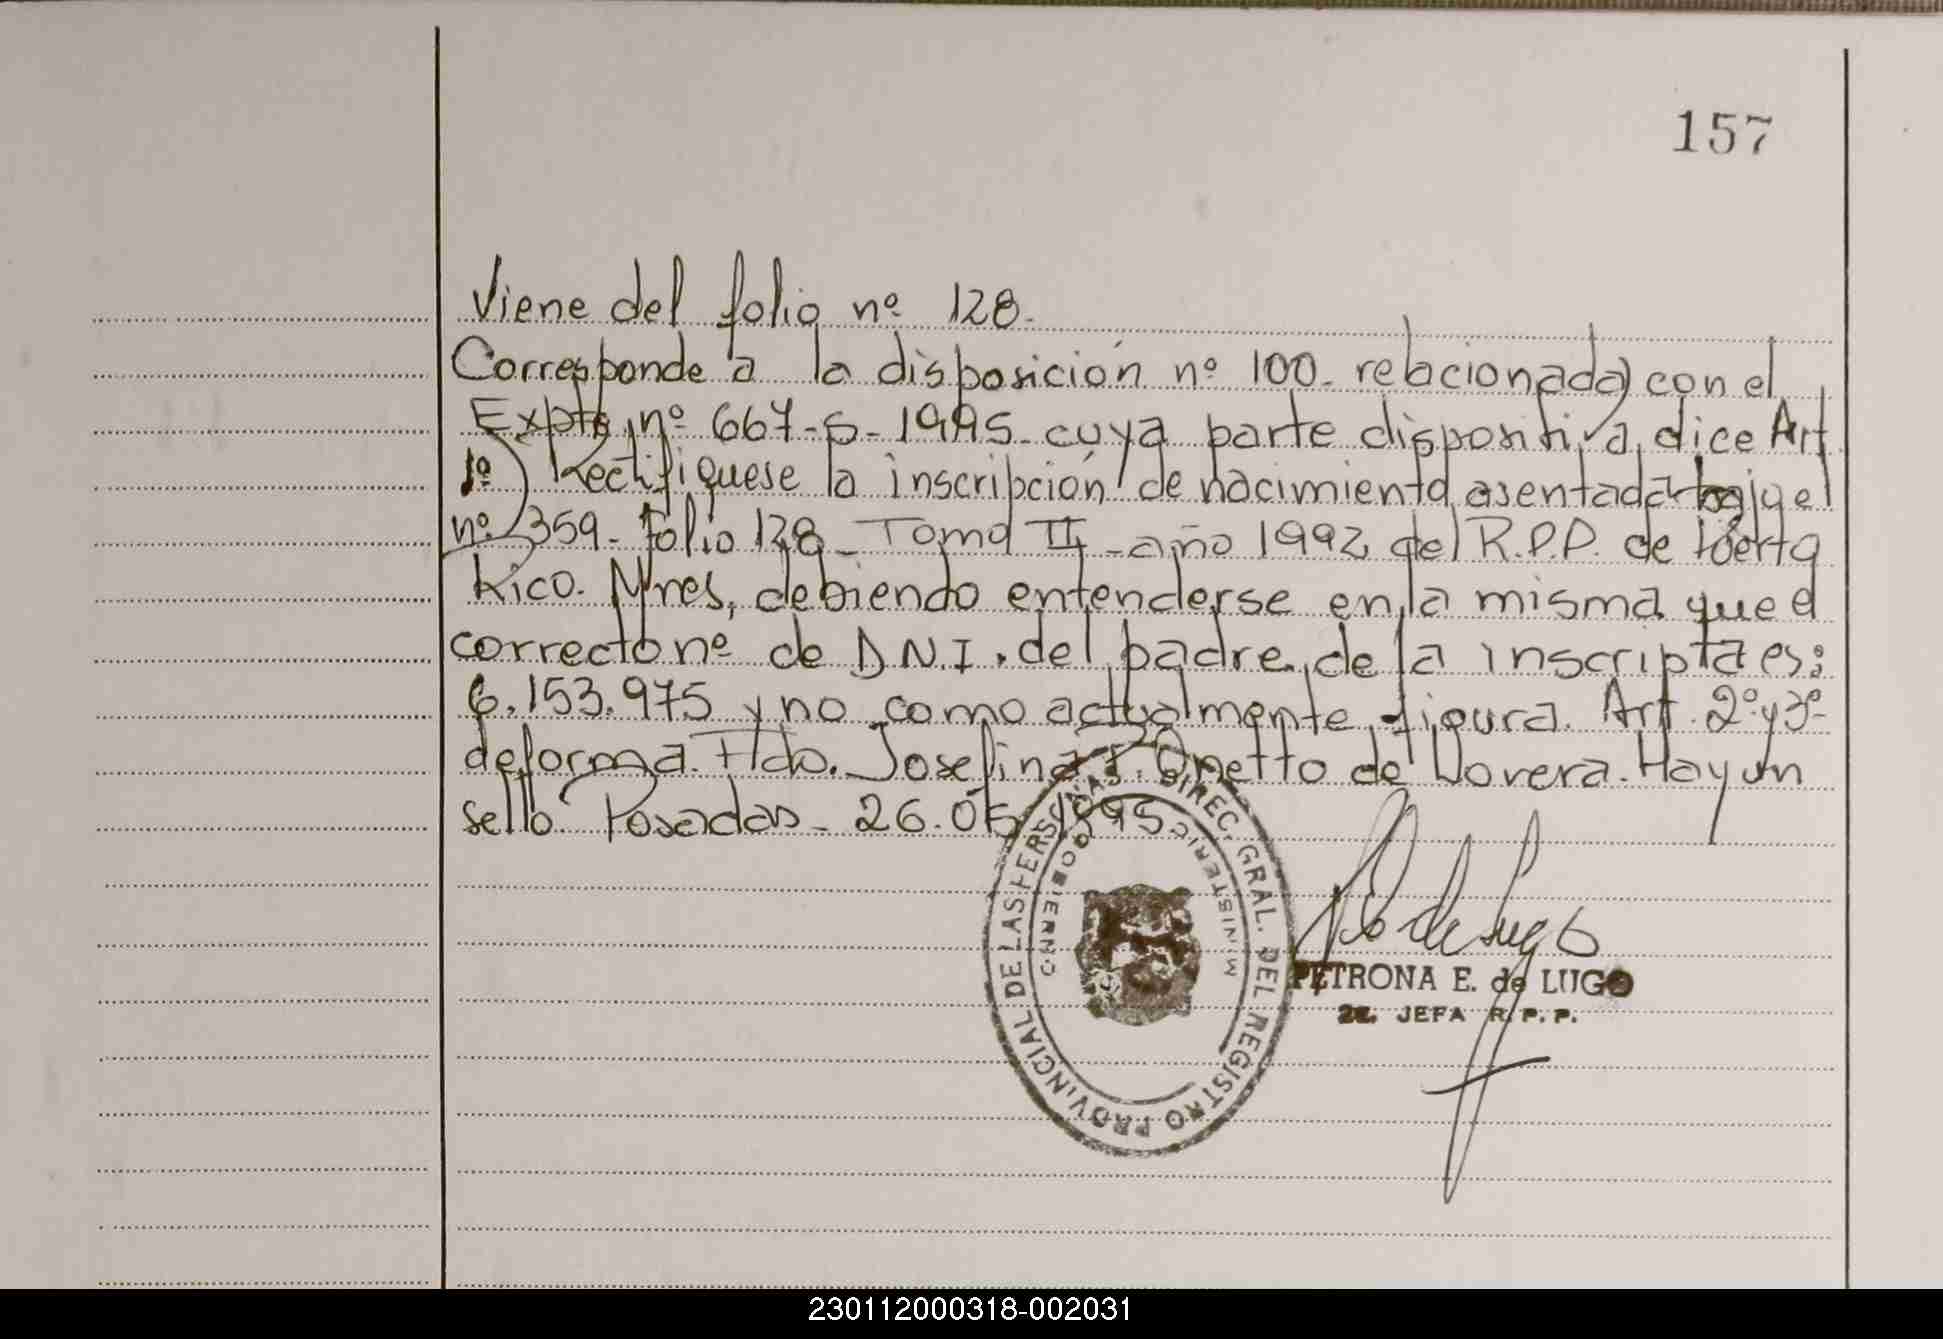 157
Viene del folio nº 128.
Corresponde a la disposición nº 100. relacionada con el
Expte nº 667-S-1995. cuya parte dispositiva dice Art
1º) Rectifíquese la inscripción de nacimiento asentada bajo el
nº 359- Folio 128- Tomo II -año 1992 del R.P.P. de Puerto
Rico. Mnes, debiendo entenderse en la misma que el
correcto nº de D.N.I. del padre de la inscripta es:
6.153.975 y no como actualmente figura. Art. 2º y 3º-
de forma. Fdo. Josefina Onetto de Lovera. Hay un
sello. Posadas- 26.05.1995
DIREC. GRAL. DEL REGISTRO PROVINCIAL DE LAS PERSONAS
MINISTERIO GOBIERNO
PETRONA E. de LUGO
JEFA R.P.P.
230112000318-002031